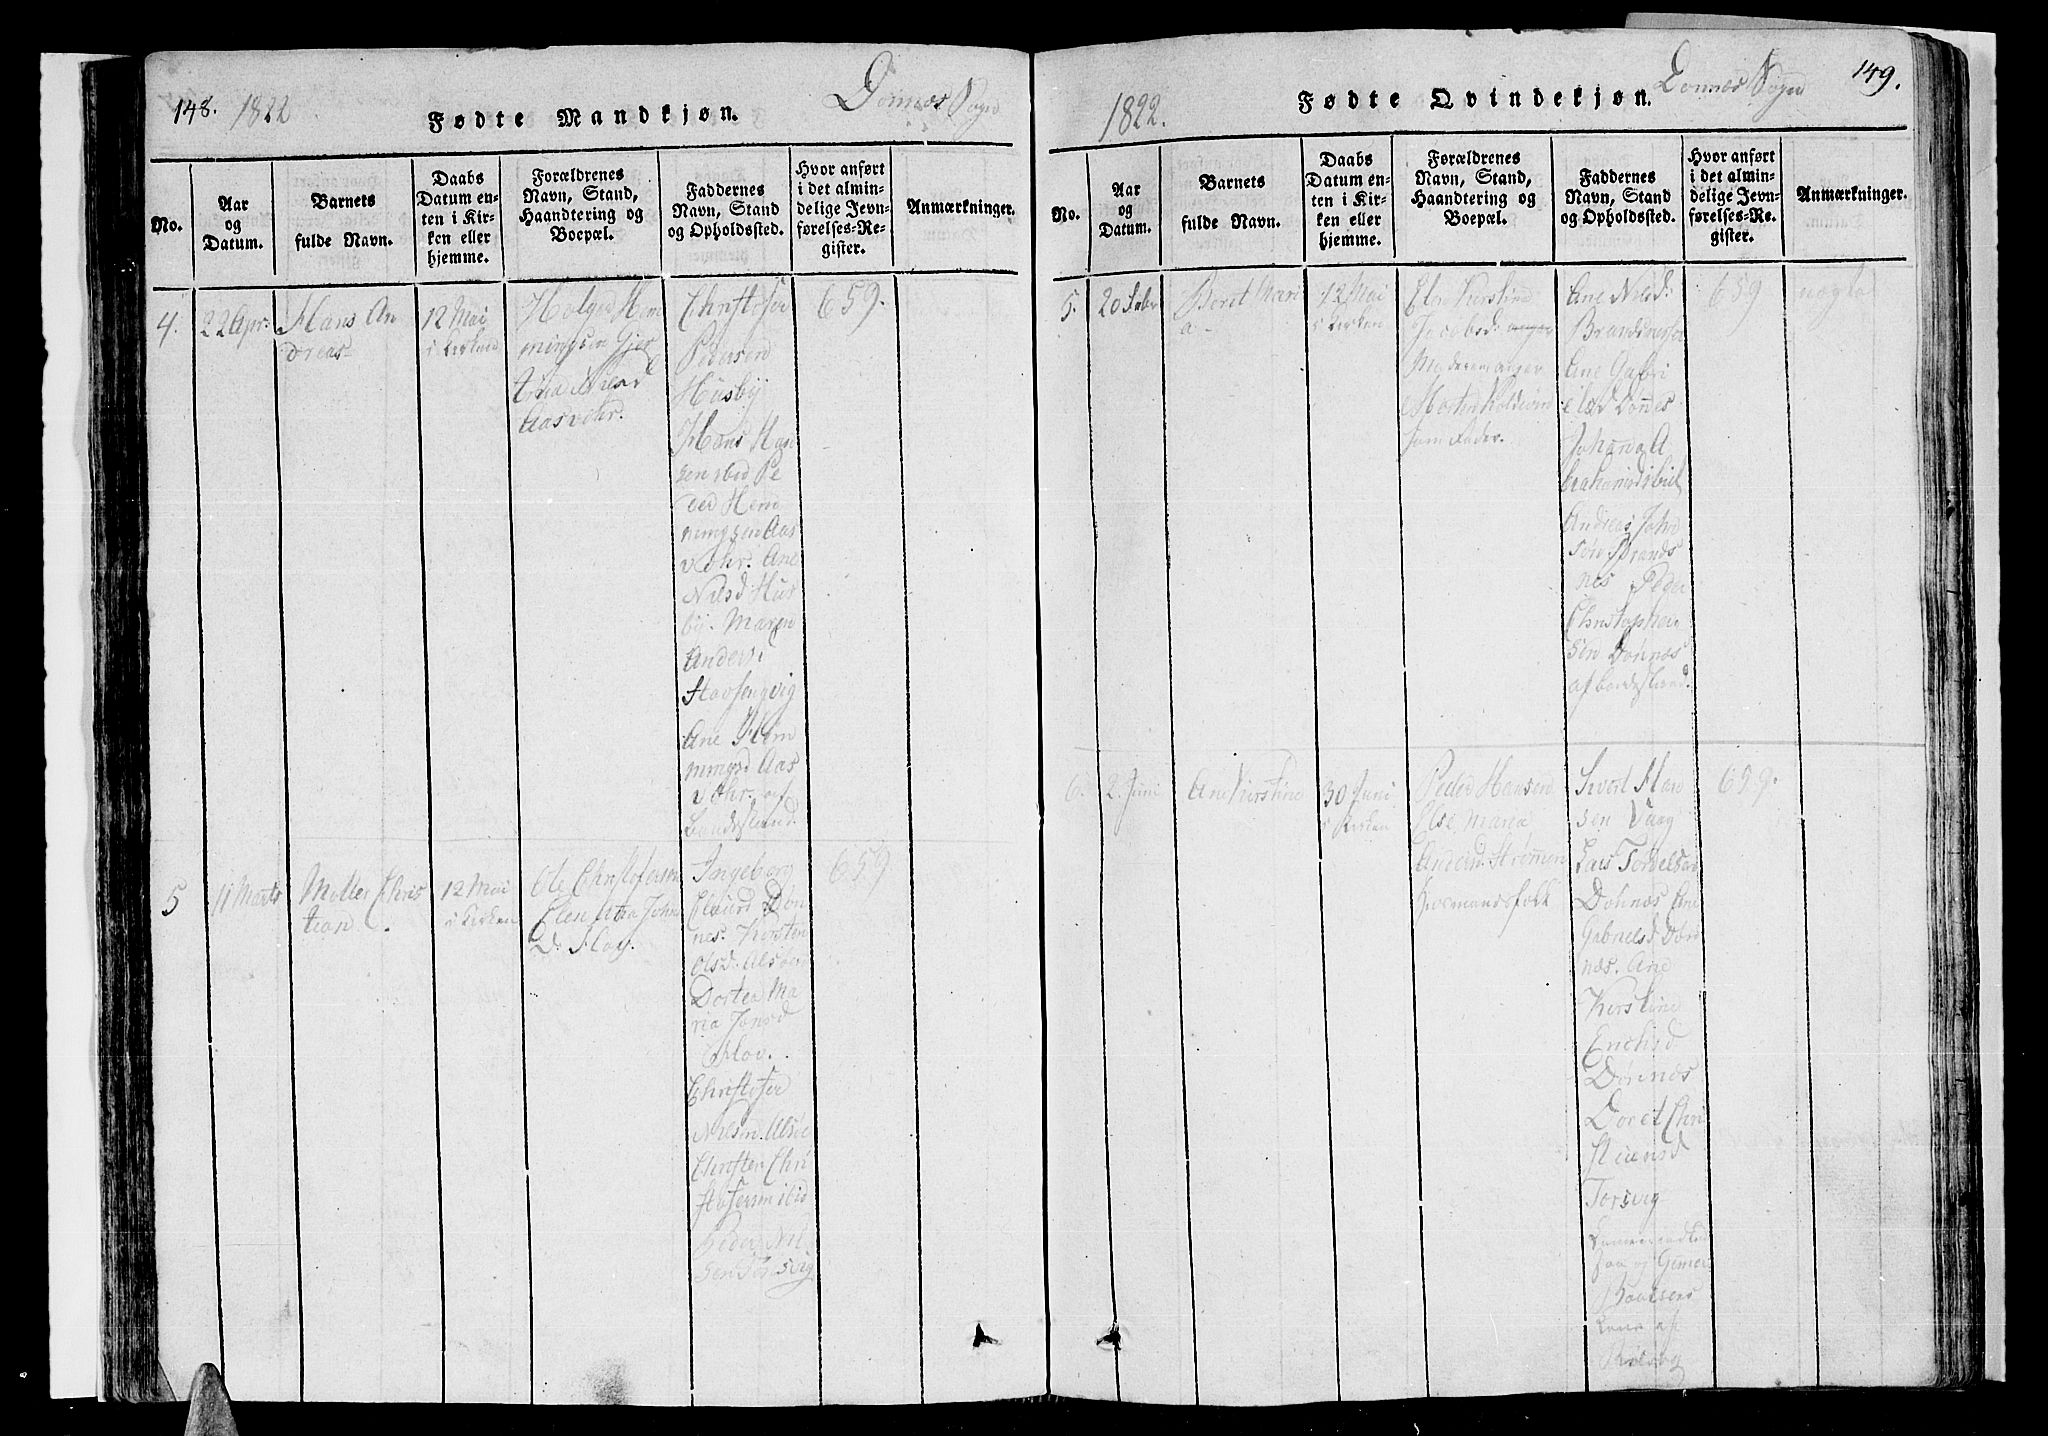 148. 1822
Fødte Mandkjøn.
Dønnæs Sogn
No.
Aar
og
Datum.
Barnets
fulde Navn.
Daabs
Datum en-
ten i Kir-
ken eller
hjemme.
Forældrenes
Navn, Stand,
Haandtering og
Boepæl.
Faddernes
Navn, Stand
og Opholdssted.
Hvor anført
i det almin-
delige Jevn-
førelses-Re-
gister.
Anmærkninger.
4.
22 Apr:
Hans An
dreas
12 Mai
i Kirken
Holger Hem
mingsen
Aasvær.
Christofer
Pedersen
Husby
Hans Han
sen ibid Pe
der Hem
mingsen Aas
vær. Ane
Nilsd Hus
by. Maren
Andersd
Ane Hem
mingsd Aas
vær. af
bondestand
659.
5
11 Marts
Moller Chris
tian
12 Mai
i Kirken
Ole Christofersen
Elen Johns
D. Slov.
Ingeborg
Døn
nes. Kersten
Olsd.
Dortea Ma
ria Jonsd
Slov.
Christofer
Nilsen
Christen Chri
stofersen ibid
Peder Nil
sen Torsvig
659
149.
1822.
Fødte Qvindekjøn.
Dønnæs Sogn
No.
Aar
og
Datum.
Barnets
fulde Navn.
Daabs
Datum en-
ten i Kir-
ken eller
hjemme.
Forældrenes
Navn, Stand,
Haandtering og
Boepæl.
Faddernes
Navn, Stand
og Opholdssted.
Hvor anført
i det almin-
delige Jevn-
førelses-Re-
gister.
Anmærkninger.
5.
20 Febr
Beret Mari
a
12 Mai
i Kirken
Elen Kirstine
Jacobsd.
Moderen angiver
Morten
som Fader.
Ane Nilsd:
Ane Gabri
elsd Dønnes
Johana A
brahamsd ibid
Andreas John
sen Brands
nes Peder
Christopher
sen Dønnæs
af bondestand.
659
uægte
6.
2. Juni
Ane Kirstine
30 Juni
i Kirken
Peder Hansen
Else Maria
Andersd. Strømmen
huusmandsfolk
Sivert Han
sen Vaag
Lars
Dønæs Ane
Gabrielsd Døn
næs. Ane
Kirstine
Erichsd
Dønnæs
Doret Chri
stiensd
Torsvig
659.